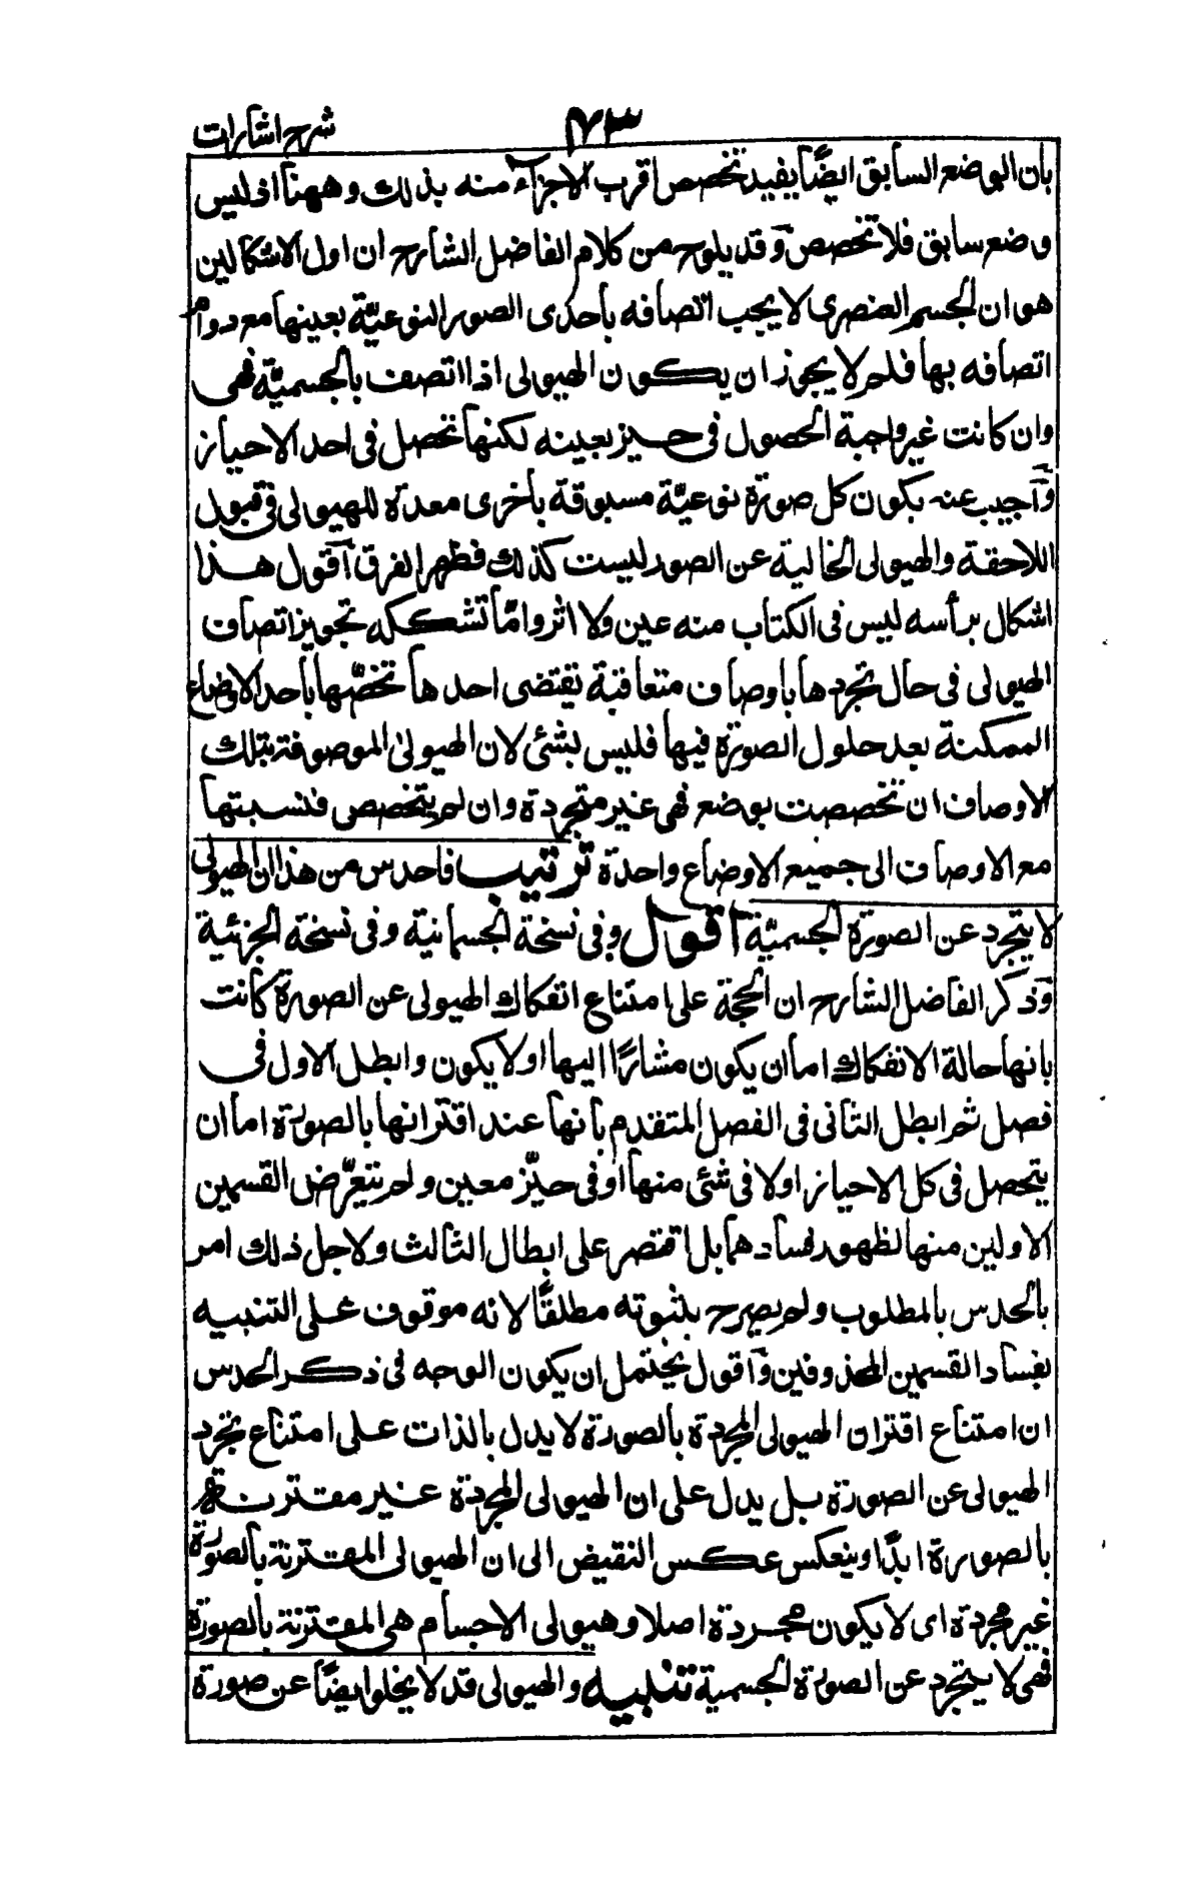 شرح اشارات
۷۳
بان الوضع السابق ايضًا يفيد تخصص اقرب الاجزاء منه بذلك وههنا اذ ليس
وضع سابق فلا تخصص وقد يلوح من كلام الفاضل الشارح ان اول الاشكالين
هو ان الجسم العنصرى لا يجب اتصافه باحدى الصور النوعيّة بعينها مع دوام
اتصافه بها فلم لا يجوز ان يكون الهيولى اذا اتصف بالجسميّة فهى
وان كانت غير واجبة الحصول فى حيز بعينه لكنها تحصل فى احد الاحياز
وآجيب عنه بكون كل صورة نوعيّة مسبوقة باخرى معدة للهيولى فى قبول
اللاحقة والهيولى الخالية عن الصور ليست كذلك فظهر الفرق آقول هذا
اشكال برأسه ليس فى الكتاب منه عين ولا اثر وامّا تشككه تجويز اتصاف
الهيولى فى حال تجردها باوصاف متعاقبة يقتضى احدها تخصّها باحد الاوضاع
الممكنة بعد حلول الصورة فيها فليس بشئى لان الهيولى الموصوفة بتلك
الاوصاف ان تخصصت بوضع فهى غير متجردة وان لم يتخصص فنسبتها
مع الاوصاف الى جميع الاوضاع واحدة ترتيب فاحدس من هذا ان الهيولى
لا يتجرد عن الصورة الجسميّة اقول وفى نسخة الجسمانية وفى نسخة الجزئية
وذكر الفاضل الشارح ان الحجة على امتناع انفكاك الهيولى عن الصورة كانت
بانها حالة الانفكاك اما ان يكون مشارًا اليها او لا يكون وابطل الاول فى
فصل ثم ابطل الثانى فى الفصل المتقدم بانها عند اقترانها بالصورة اما ان
يتحصل فى كل الاحياز او لا فى شئى منها او فى حيّز معين ولم يتعرّض القسمين
الاولين منها لظهور فسادهما بل اقتصر على ابطال الثالث ولاجل ذلك امر
بالحدس بالمطلوب ولم يصرح بثبوته مطلقًا لانه موقوف على التنبيه
بفساد القسمين المحذوفين وآقول يحتمل ان يكون الوجه فى ذكر الحدس
ان امتناع اقتران الهيولى المجردة بالصورة لا يدل بالذات على امتناع تجرد
الهيولى عن الصورة بل يدل على ان الهيولى المجردة غير مقترنة
بالصورة ابدًا وينعكس عكس النقيض الى ان الهيولى المقترنة بالصورة
غير مجردة اى لا يكون مجردة اصلا وهيولى الاجسام هى المقترنة بالصورة
فهى لا يتجرد عن الصورة الجسمية تنبيه والهيولى قد لا يخلو ايضًا عن صورة